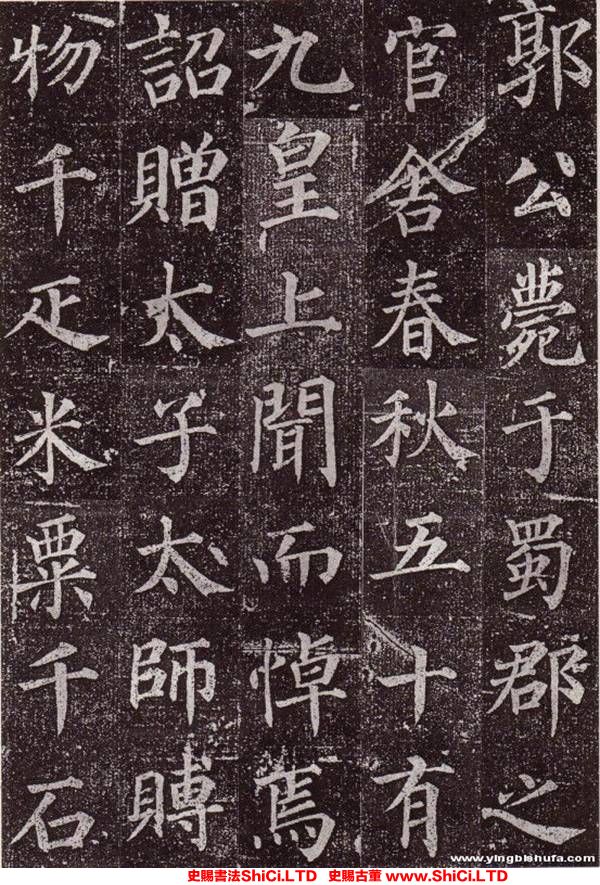 郭公薨于蜀郡之
官舍春秋五十有
九皇上聞而悼焉
詔贈太子太師賻
物千疋米粟千石
www.yingbishufa.com
史賜書法ShiCi.LTD 史賜古董 www.ShiCi.LTD